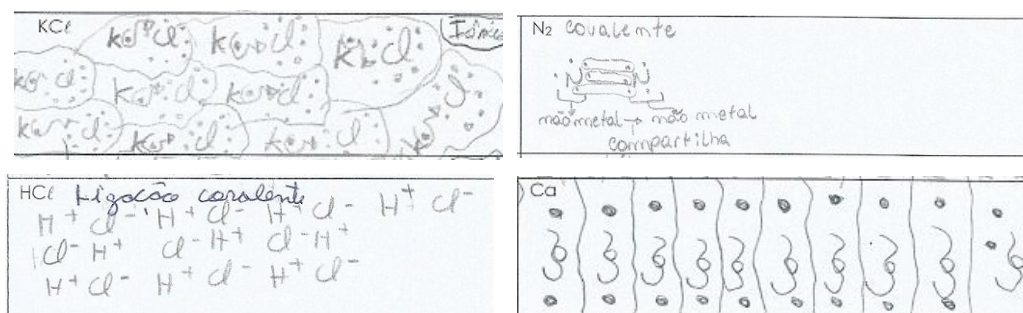 KCl
Iônica
K Cl K Cl K Cl
K Cl K Cl K Cl
K Cl K Cl K Cl
N2 covalente
N N
não metal → não metal
compartilha
HCl Ligação covalente
H+ Cl- H+ Cl- H+ Cl- H+ Cl-
Cl- H+ Cl- H+ Cl- H+
H+ Cl- H+ Cl- H+ Cl-
Ca
Ca Ca Ca Ca Ca Ca Ca Ca Ca Ca